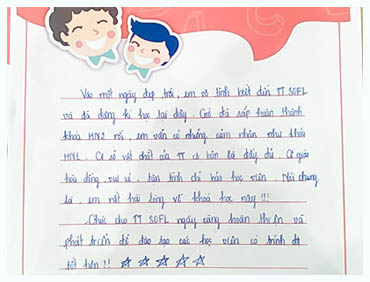 Vào một ngày đẹp trời, em vô tình biết đến TT SOFL
và đã đăng kí học tại đây. Giờ đã sắp hoàn thành
khoá HN2 rồi, em vẫn có những cảm nhận như khoá
HN1. Cơ sở vật chất của TT cơ bản là đầy đủ. Cô giáo
hoà đồng, vui vẻ, tận tình chỉ bảo học viên. Nói chung
là, em rất hài lòng về khoá học này !!!
Chúc cho TT SOFL ngày càng hoàn thiện và
phát triển để đào tạo các học viên có trình độ
tốt hơn !! ☆ ☆ ☆ ☆ ☆